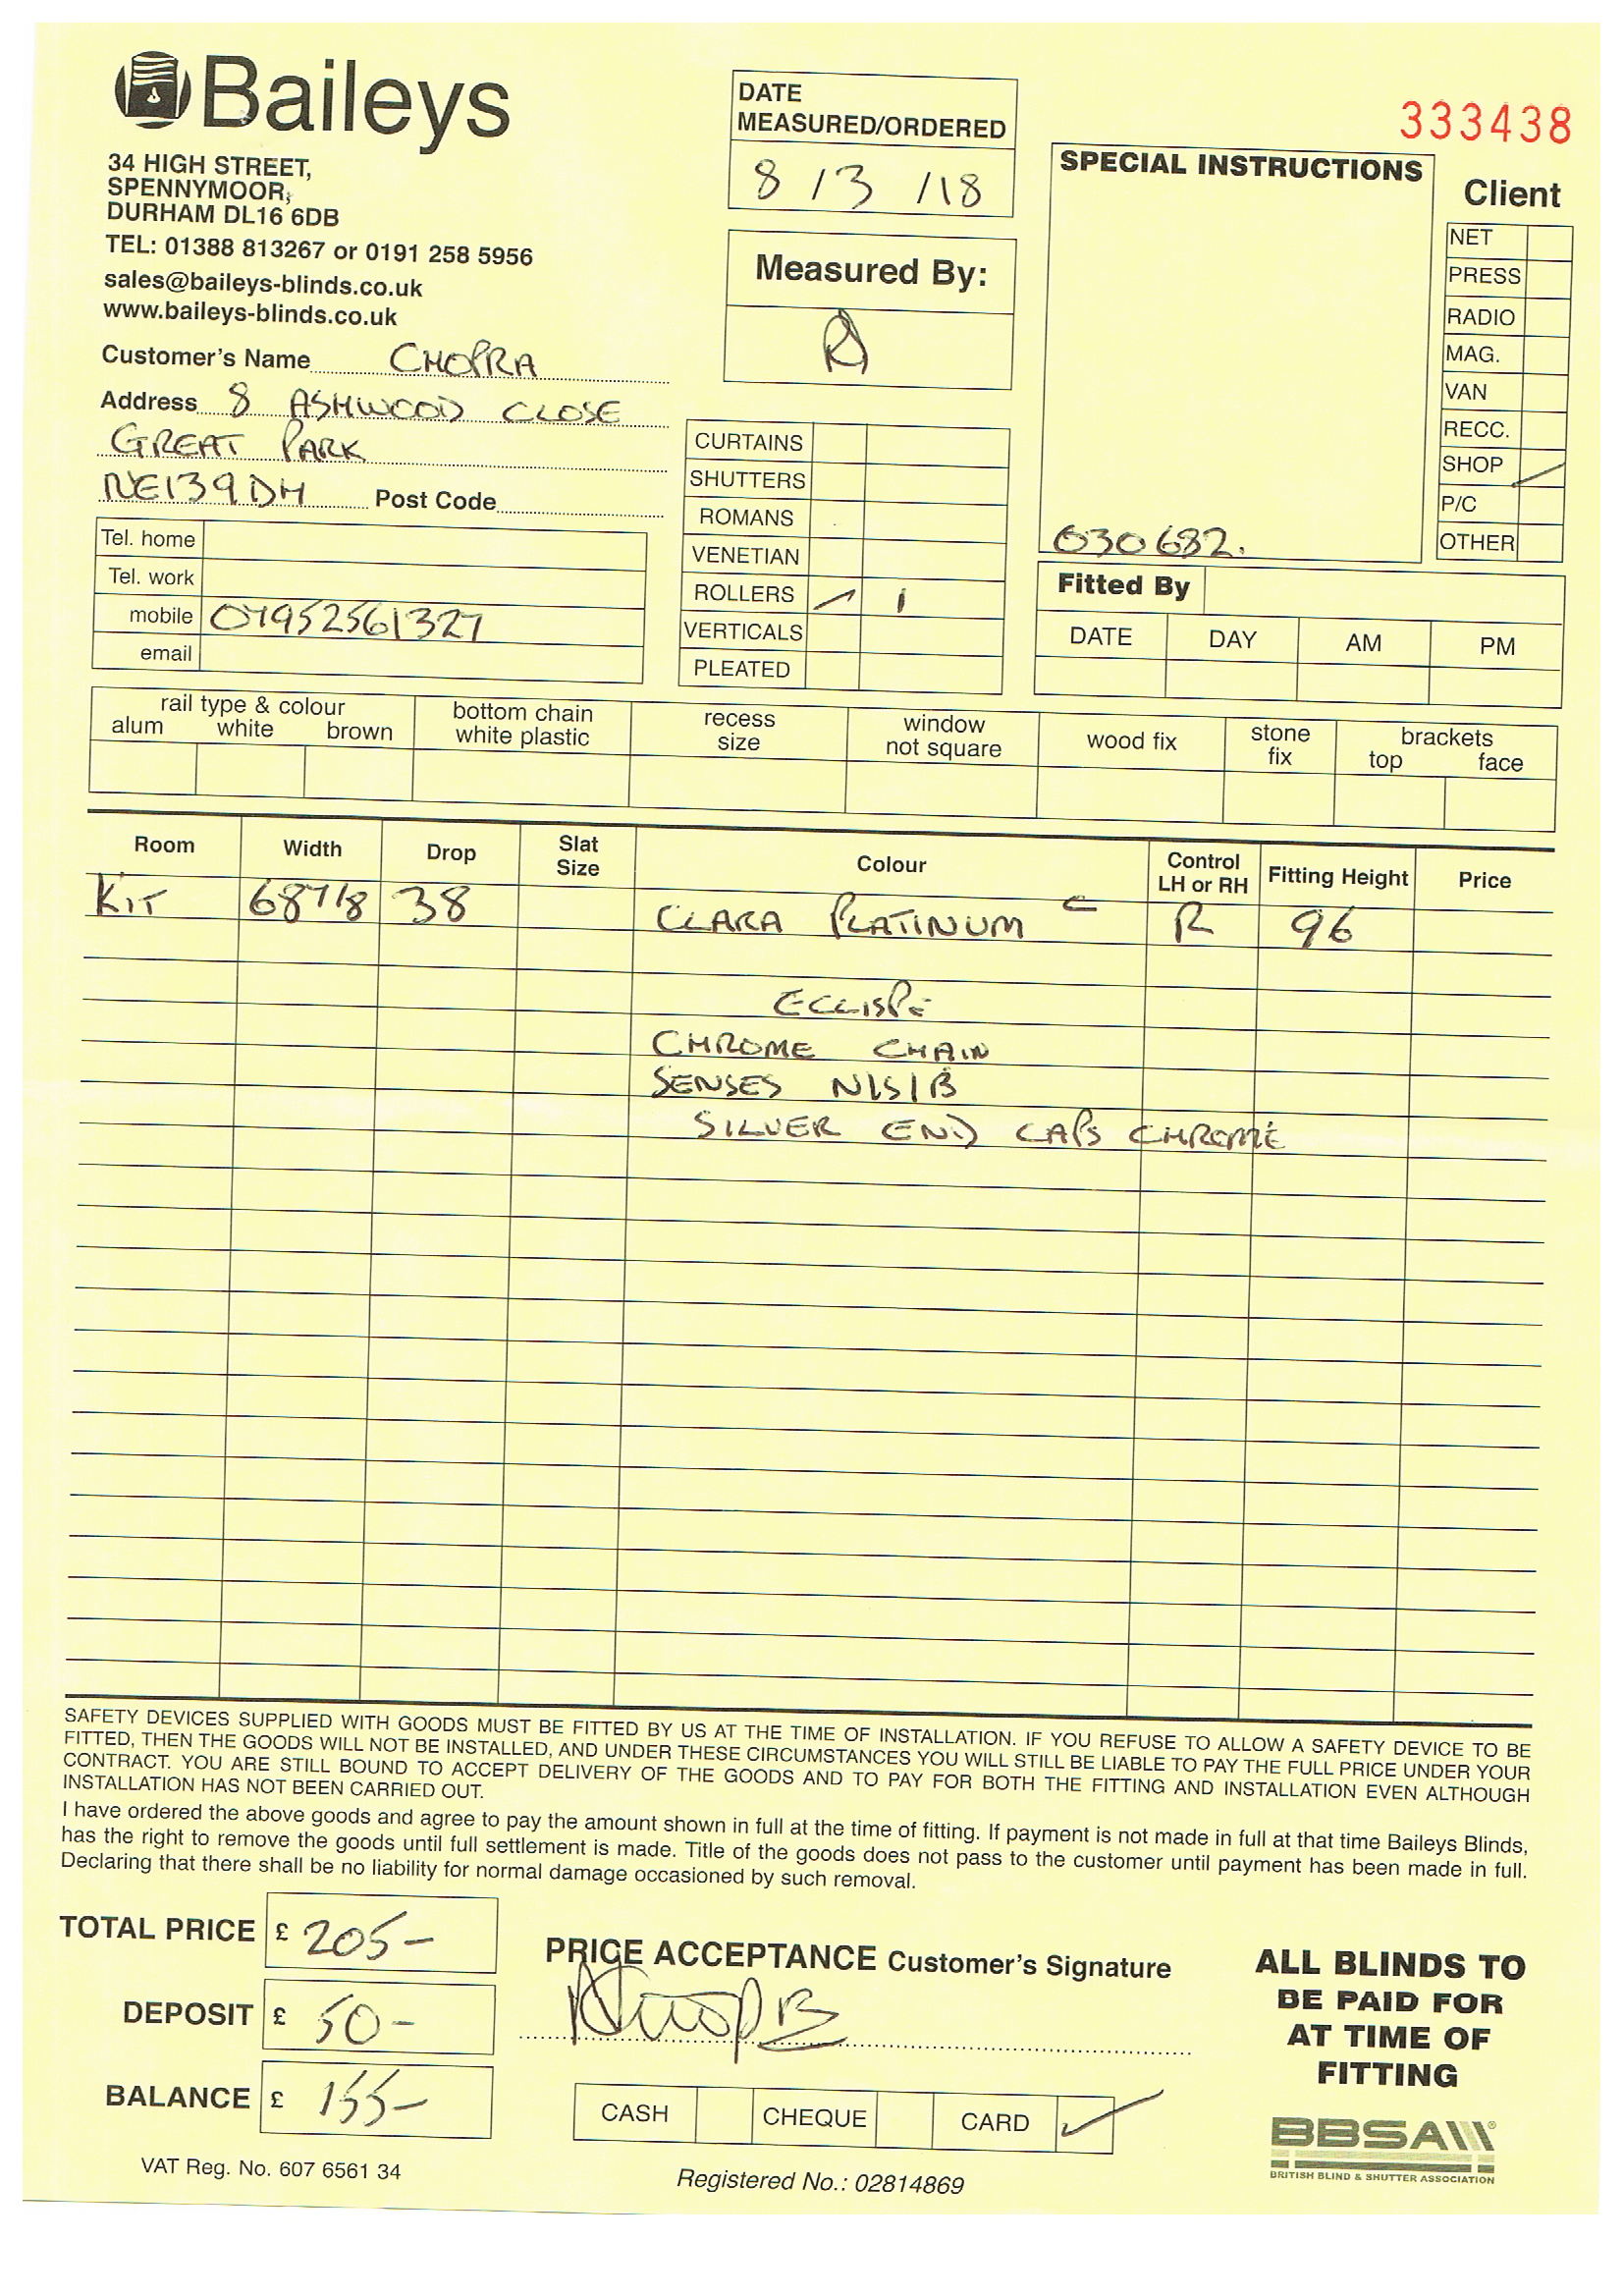 Baileys
34 HIGH STREET,
SPENNYMOOR,
DURHAM DL16 6DB
TEL: 01388 813267 or 0191 258 5956
sales@baileys-blinds.co.uk
www.baileys-blinds.co.uk
Customer's Name CHOPRA
Address 8 ASHWOOD CLOSE
GREAT PARK
NE139DH Post Code
Tel. home
Tel. work
mobile 07952561327
email
DATE
MEASURED/ORDERED
8/3/18
Measured By:
CURTAINS
SHUTTERS
ROMANS
VENETIAN
ROLLERS 1
VERTICALS
PLEATED
333438
SPECIAL INSTRUCTIONS
030682.
Client
NET
PRESS
RADIO
MAG.
VAN
RECC.
SHOP
P/C
OTHER
Fitted By
DATE DAY AM PM
rail type & colour
alum white brown
bottom chain
white plastic
recess
size
window
not square
wood fix
stone
fix
brackets
top face
Room Width Drop Slat Size Colour Control LH or RH Fitting Height Price
KIT 687/8 38 CLARA PLATINUM C R 96
ECLISPE
CHROME CHAIN
SENSES N/S/B
SILVER END CAPS CHROME
SAFETY DEVICES SUPPLIED WITH GOODS MUST BE FITTED BY US AT THE TIME OF INSTALLATION. IF YOU REFUSE TO ALLOW A SAFETY DEVICE TO BE
FITTED, THEN THE GOODS WILL NOT BE INSTALLED, AND UNDER THESE CIRCUMSTANCES YOU WILL STILL BE LIABLE TO PAY THE FULL PRICE UNDER YOUR
CONTRACT. YOU ARE STILL BOUND TO ACCEPT DELIVERY OF THE GOODS AND TO PAY FOR BOTH THE FITTING AND INSTALLATION EVEN ALTHOUGH
INSTALLATION HAS NOT BEEN CARRIED OUT.
I have ordered the above goods and agree to pay the amount shown in full at the time of fitting. If payment is not made in full at that time Baileys Blinds,
has the right to remove the goods until full settlement is made. Title of the goods does not pass to the customer until payment has been made in full.
Declaring that there shall be no liability for normal damage occasioned by such removal.
TOTAL PRICE £ 205-
DEPOSIT £ 50-
BALANCE £ 155-
VAT Reg. No. 607 6561 34
PRICE ACCEPTANCE Customer's Signature
CASH CHEQUE CARD
Registered No.: 02814869
ALL BLINDS TO
BE PAID FOR
AT TIME OF
FITTING
BBSA
BRITISH BLIND & SHUTTER ASSOCIATION